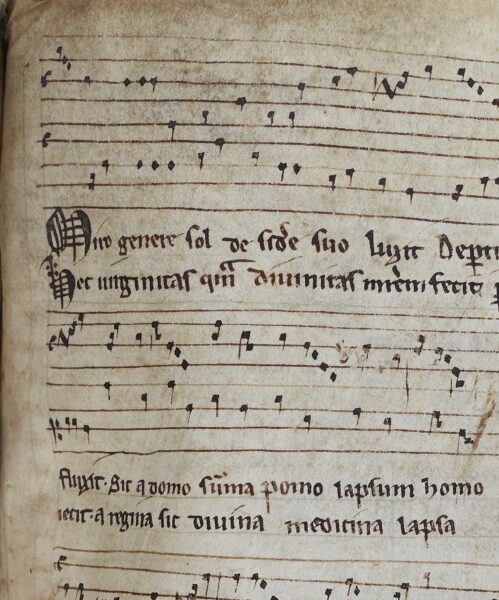 Miro genere sol de sid'e suo luxit Dep
Nec uirginitas qm̄ diuinitas mr̄em fecit
fluxit. Sic a domo sūma pomo lapsum homo
iecit. a regina sic diuina medicina lapsa